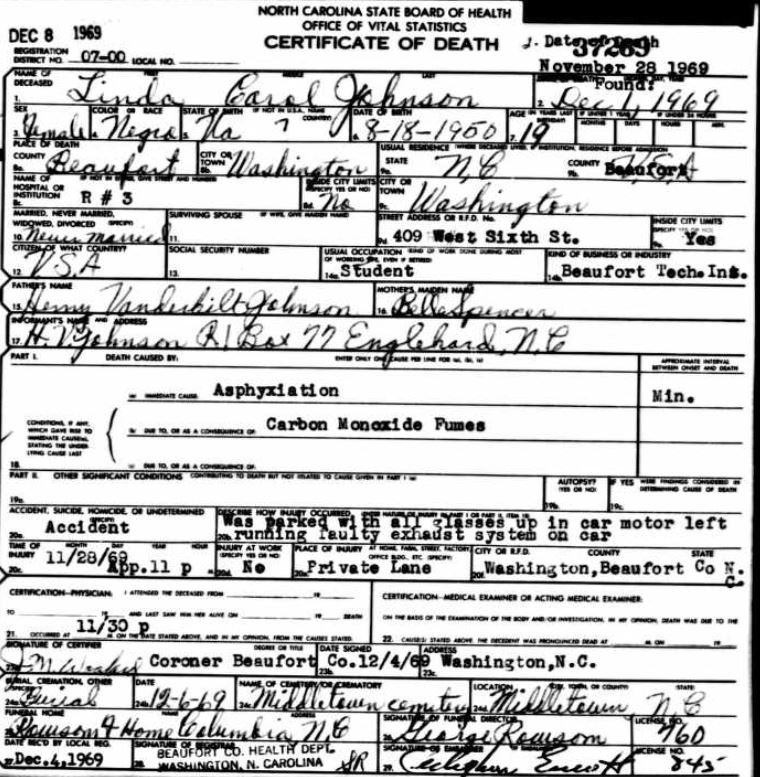 NORTH CAROLINA STATE BOARD OF HEALTH
OFFICE OF VITAL STATISTICS
CERTIFICATE OF DEATH
DEC 8 1969
37289
2. Date of Death
November 28 1969
Found:
REGISTRATION DISTRICT NO. 07-00 LOCAL NO.
NAME OF DECEASED FIRST MIDDLE LAST
1. Linda Carol Johnson 2. Dec 1, 1969
SEX COLOR OR RACE STATE OF BIRTH (IF NOT IN U.S.A., NAME COUNTRY) DATE OF BIRTH AGE (IN YEARS LAST BIRTHDAY) IF UNDER 1 YEAR IF UNDER 24 HOURS
MONTHS DAYS HOURS MIN.
3. Female 4. Negro 5. 6. 8-18-1950 7. 19
PLACE OF DEATH USUAL RESIDENCE (WHERE DECEASED LIVED. IF INSTITUTION, RESIDENCE BEFORE ADMISSION)
COUNTY 8a. Beaufort CITY OR TOWN 8b. Washington STATE 9a. N.C COUNTY 9b. Beaufort
NAME OF HOSPITAL OR INSTITUTION (IF NOT IN EITHER, GIVE STREET AND NUMBER) 8c. R # 3 INSIDE CITY LIMITS (SPECIFY YES OR NO) 8d. No CITY OR TOWN 9c. Washington
MARRIED, NEVER MARRIED, WIDOWED, DIVORCED (SPECIFY) 10. Never Married SURVIVING SPOUSE (IF WIFE, GIVE MAIDEN NAME) 11. STREET ADDRESS OR R.F.D. No. 9d. 409 West Sixth St. INSIDE CITY LIMITS (SPECIFY YES OR NO) 9e. Yes
CITIZEN OF WHAT COUNTRY? 12. U.S.A SOCIAL SECURITY NUMBER 13. USUAL OCCUPATION (KIND OF WORK DONE DURING MOST OF WORKING LIFE, EVEN IF RETIRED) 14a. Student KIND OF BUSINESS OR INDUSTRY 14b. Beaufort Tech. Ins.
FATHER'S NAME 15. Henry Vanderbilt Johnson MOTHER'S MAIDEN NAME 16. Belle Spencer
INFORMANT'S NAME AND ADDRESS
17. H. V Johnson R 1 Box 77 Englehard, N.C
PART I. DEATH CAUSED BY: ENTER ONLY ONE CAUSE PER LINE FOR (a), (b), (c) APPROXIMATE INTERVAL BETWEEN ONSET AND DEATH
(a) IMMEDIATE CAUSE Asphyxiation Min.
CONDITIONS, IF ANY, WHICH GAVE RISE TO IMMEDIATE CAUSE(a), STATING THE UNDERLYING CAUSE LAST
(b) DUE TO, OR AS A CONSEQUENCE OF: Carbon Monoxide Fumes
18. (c) DUE TO, OR AS A CONSEQUENCE OF:
PART II. OTHER SIGNIFICANT CONDITIONS CONTRIBUTING TO DEATH BUT NOT RELATED TO CAUSE GIVEN IN PART I (a) AUTOPSY? (YES OR NO) IF YES WERE FINDINGS CONSIDERED IN DETERMINING CAUSE OF DEATH
19a. 19b. 19c.
ACCIDENT, SUICIDE, HOMICIDE, OR UNDETERMINED (SPECIFY) DESCRIBE HOW INJURY OCCURRED (ENTER NATURE OF INJURY IN PART I OR PART II, ITEM 18)
20a. Accident 20b. Was parked with all glasses up in car motor left
running faulty exhaust system on car
TIME OF INJURY MONTH DAY YEAR HOUR INJURY AT WORK (SPECIFY YES OR NO) PLACE OF INJURY AT HOME, FARM, STREET, FACTORY, OFFICE BLDG., ETC. (SPECIFY) CITY OR R.F.D. COUNTY STATE
20c. 11/28/69 App. 11 p M. 20d. No 20e. Private Lane 20f. Washington, Beaufort Co N.C.
CERTIFICATION-PHYSICIAN: I ATTENDED THE DECEASED FROM 19 TO 19 AND LAST SAW HIM/HER ALIVE ON 19 DEATH
21. OCCURRED AT 11/30 p M. ON THE DATE STATED ABOVE, AND IN MY OPINION, FROM THE CAUSES STATED.
CERTIFICATION-MEDICAL EXAMINER OR ACTING MEDICAL EXAMINER:
ON THE BASIS OF THE EXAMINATION OF THE BODY AND/OR INVESTIGATION, IN MY OPINION, DEATH WAS DUE TO THE
22. CAUSE(S) STATED ABOVE. THE DECEDENT WAS PRONOUNCED DEAD AT M. ON 19
SIGNATURE OF CERTIFIER DEGREE OR TITLE DATE SIGNED ADDRESS
23a. Coroner Beaufort Co. 23b. 12/4/69 23c. Washington, N.C.
BURIAL, CREMATION, OTHER (SPECIFY) DATE NAME OF CEMETERY OR CREMATORY LOCATION (CITY, TOWN, OR COUNTY) STATE
24a. Burial 24b. 12-6-69 24c. Middletown cemetery 24d. Middletown, N.C
FUNERAL HOME NAME ADDRESS SIGNATURE OF FUNERAL DIRECTOR LICENSE NO.
25. Rowson F Home Columbia N.C 26. George Rowson 760
DATE REC'D BY LOCAL REG. SIGNATURE OF REGISTRAR SIGNATURE OF EMBALMER LICENSE NO.
27. Dec. 4, 1969 28. BEAUFORT CO. HEALTH DEPT.
WASHINGTON, N. CAROLINA SR 29. 845